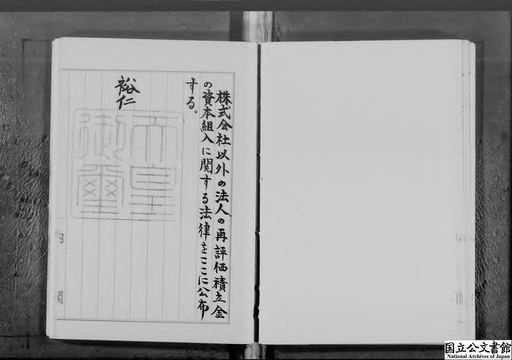 株式会社以外の法人の再評価積立金
の資本組入に関する法律をここに公布
する。
裕仁
天皇
御璽
国立公文書館
National Archives of Japan